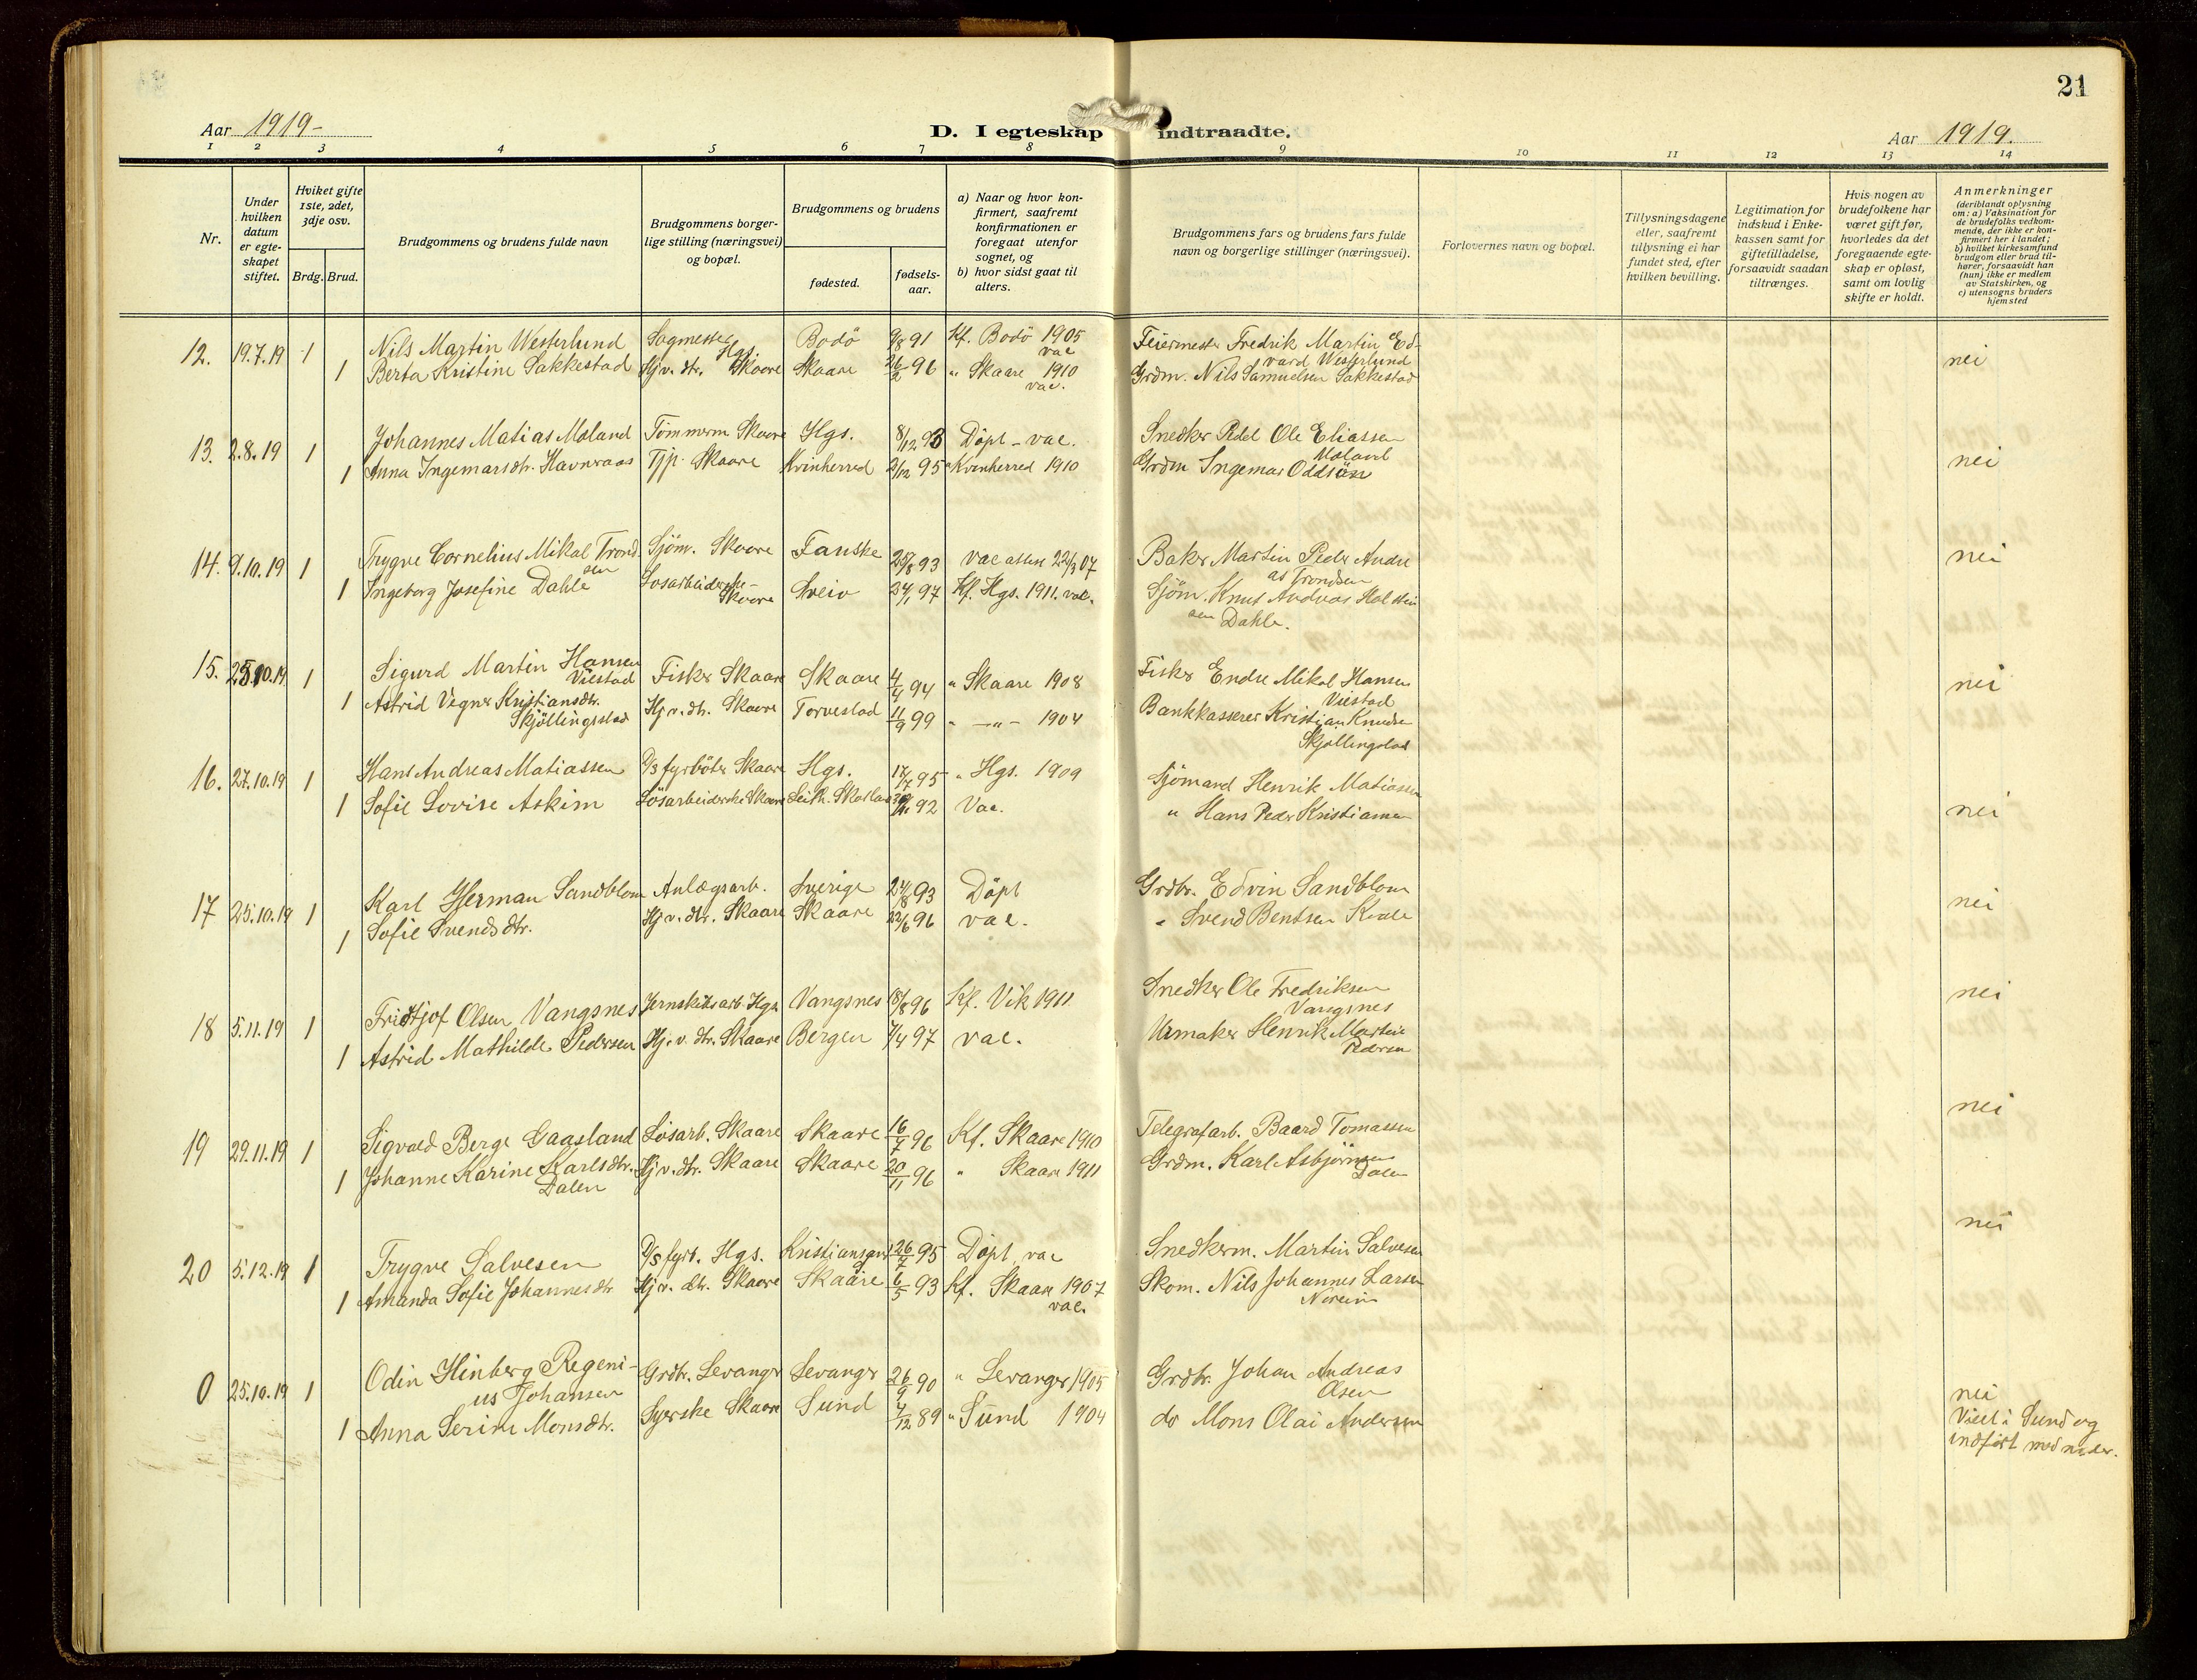 21
Aar 1919-
D. I egteskap indtraadte.
Aar 1919.
1 2 3 4 5 6 7 8 9 10 11 12 13 14
Nr.
Under hvilken datum er egteskapet stiftet.
Hviket gifte 1ste, 2det, 3dje osv.
Brdg. Brud.
Brudgommens og brudens fulde navn
Brudgommens borgerlige stilling (næringsvei) og bopæl.
Brudgommens og brudens
fødested.
fødselsaar.
a) Naar og hvor konfirmert, saafremt konfirmationen er foregaat utenfor sognet, og
b) hvor sidst gaat til alters.
Brudgommens fars og brudens fars fulde navn og borgerlige stillinger (næringsvei).
Forlovernes navn og bopæl.
Tillysningsdagene eller, saafremt tillysning ei har fundet sted, efter hvilken bevilling.
Legitimation for indskud i Enkekassen samt for giftetilladelse, forsaavidt saadan tiltrænges.
Hvis nogen av brudefolkene har været gift før, hvorledes da det foregaaende egteskap er opløst, samt om lovlig skifte er holdt.
Anmerkninger (deriblandt oplysning om: a) Vaksination for de brudefolks vedkommende, der ikke er konfirmert her i landet; b) hvilket kirkesamfund brudgom eller brud tilhører, forsaavidt han (hun) ikke er medlem av Statskirken, og c) utensogns bruders hjemsted
12. 19.7.19 1 Nils Martin Westerlund Sagmester Hgs. Bodö 9/8 91 Kf. Bodö 1905 vac Feiermester Fredrik Martin Edvard Westerlund nei
1 Berta Kristine Sakkestad Hj.v. dtr. Skaare Skaare 26/2 96 " Skaare 1910 vac. Grdm. Nils Samuelsen Sakkestad
13. 2.8.19 1 Johannes Matias Moland Tömmerm Skaare Hgs. 8/12 93 Döpt - vac. Snedker Pedel Ole Eliassen Moland nei
1 Anna Ingemarsdtr. Havnraas Tjp. Skaare Kvinherred 2/12 95 " Kvinherred 1910 Grdm Ingemar Oddsön
14. 9.10.19 1 Trygve Cornelius Mikal Trondsen Sjöm. Skaare Fauske 25/8 93 vac attest 22/3 07 Baker Martin Peder Andreas Trondsen nei
1 Ingeborg Josefine Dahle Losarbeiderske - Skaare Sveio 24/1 97 Kf. Hgs. 1911. vac. Sjöm. Knut Andreas Halstensen Dahle.
15. 25.10.19 1 Sigurd Martin Hansen Viestad Fisker Skaare Skaare 4/4 94 " Skaare 1908 Fisker Endre Mikal Hansen Viestad nei
1 Astrid Vegner Kristiansdtr. Skjöllingsstad Hj.v. dtr. Skaare Torvestad 11/9 99 " -"- 1904 Bankkasserer Kristian Knudsen Skjöllingstad
16. 27.10.19 1 Hans Andreas Matiassen D/S fyrböter Skaare Hgs. 17/7 95 " Hgs. 1909 Sjömand Henrik Matiassen
1 Sofie Lovise Askim Lösarbeiderske Skaare Leith. Skotland 92 Vac. " Hans Peder Kristiansen nei
17 25.10.19 1 Karl Herman Sandblom Anlægsarb. Sverige 24/8 93 Döpt Grdbr. Edvin Sandblom nei
1 Sofie Svendsdtr. Hj.v. dtr. Skaare Skaare 22/6 96 vac. " Svend Bentsen Kvale
18 5.11.19 1 Fridtjof Olsen Vangsnes Jernskibsarb. Hgs. Vangsnes 18/8 96 Kf. Vik 1911 Snedker Ole Fredriksen Vangsnes nei
1 Astrid Mathilde Pedersen Hj.v. dtr. Skaare Bergen 7/4 97 vac. Urmaker Henrik Martin Pedersen
19 29.11.19 1 Sigvald Berge Gaasland Losarb. Skaare Skaare 16/7 96 Kf. Skaare 1910 Telegrafarb. Baard Tomassen nei
1 Johanne Karine Karlsdtr. Dalen Hj.v. dtr. Skaare Skaare 20/11 96 " Skaare 1911 Grdm. Karl Asbjörnsen Dalen
20 5.12.19 1 Trygve Salvesen D/S fyrb. Hgs. Kristiansand 26/7 95 Döpt, vac Snedkerm. Martin Salvesen nei
1 Amanda Sofie Johannesdtr Hj.v. dtr. Skaare Skaare 6/5 93 Kf. Skaare 1907 vac. Skom. Nils Johannes Larsen
0 25.10.19 1 Odin Hinberg Regenius Johansen Grdbr. Levanger Levanger 26/9 90 " Levanger 1905 Grdbr. Johan Andreas Olsen nei
1 Anna Serine Monsdtr. Syerske Skaare Sund 4/12 89 " Sund 1904 do Mons Olai Andersen Viet i Sund og indfört